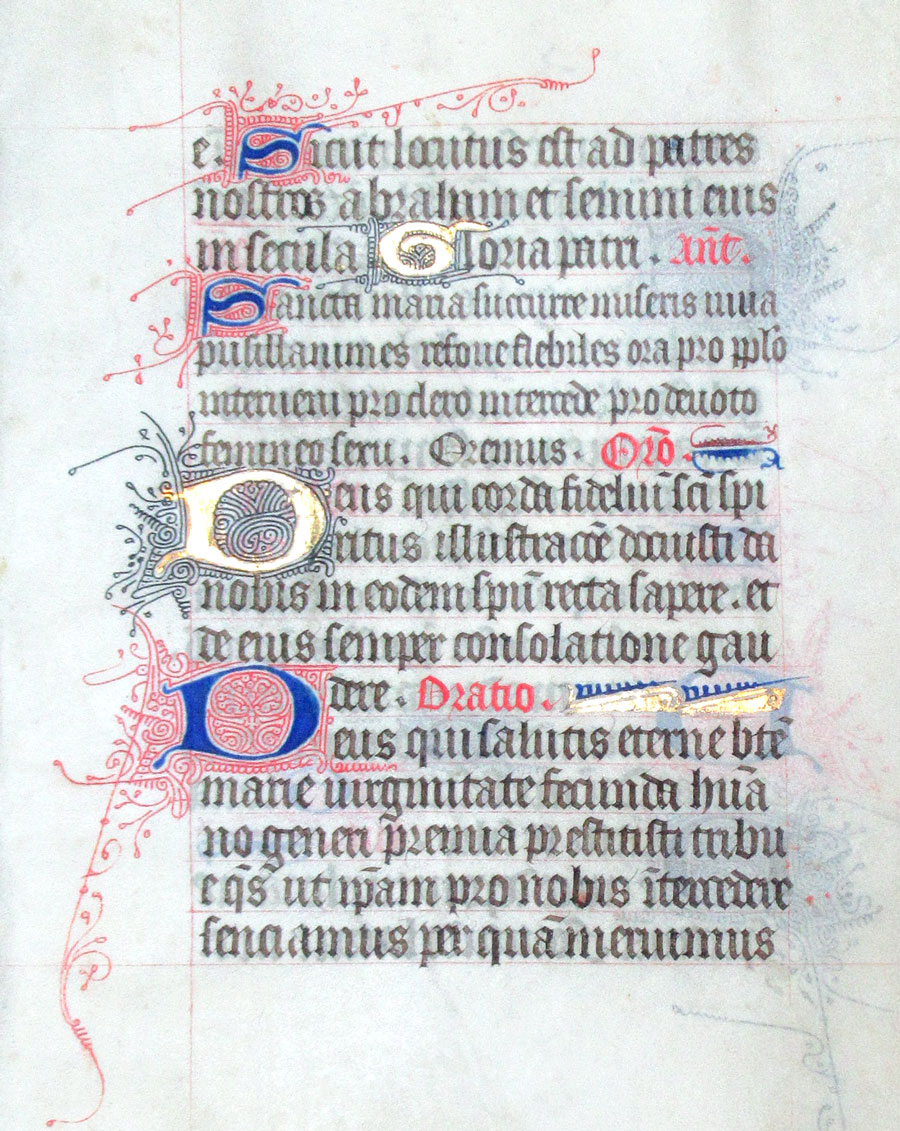 e. Sicut locutus est ad patres
nostros abraham et semini eius
in secula Gloria patri. Añt.
Sancta maria succurre miseris iuua
pusillanimes refoue flebiles ora pro pplo
interueni pro clero intercede pro deuoto
femineo sexu. Oremus. Orõ.
Deus qui corda fideliũ scĩ spi
ritus illustracõe docuisti da
nobis in eodem spũ recta sapere. et
de eius semper consolatione gau
dere. Oratio.
Deus qui salutis eterne btẽ
marie uirginitate fecunda hũa
no generi premia prestitisti tribu
e q̃s ut ip̃am pro nobis ĩtercedere
senciamus per quã meruimus